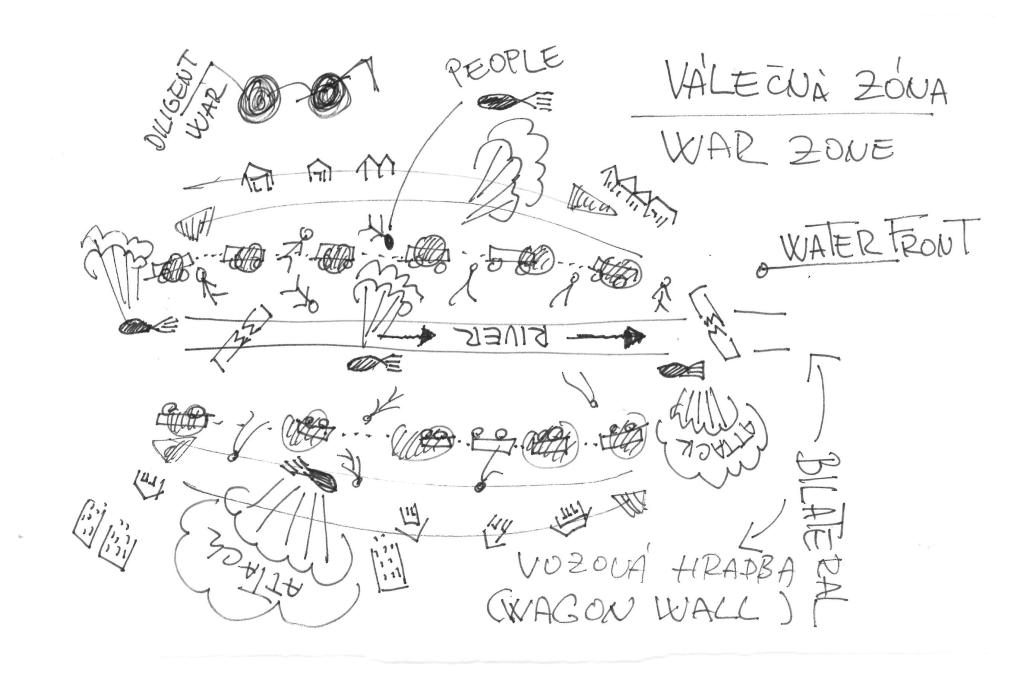 DILIGENT
WAR
PEOPLE
VÁLEČNÁ ZÓNA
WAR ZONE
WATERFRONT
RIVER
ATTACK
ATTACK
BILATERAL
VOZOVÁ HRADBA
(WAGON WALL)